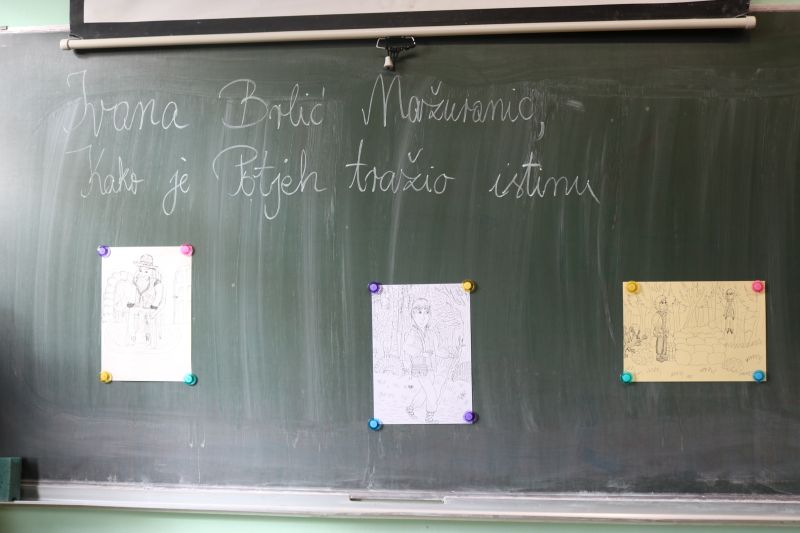 Ivana Brlić Mažuranić,
Kako je Potjeh tražio istinu